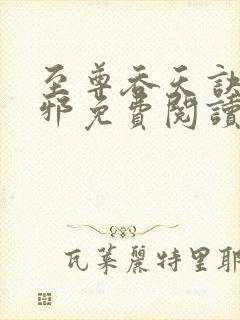 至尊吞天訣
邪免費閱讀
瓦萊麗特里耶